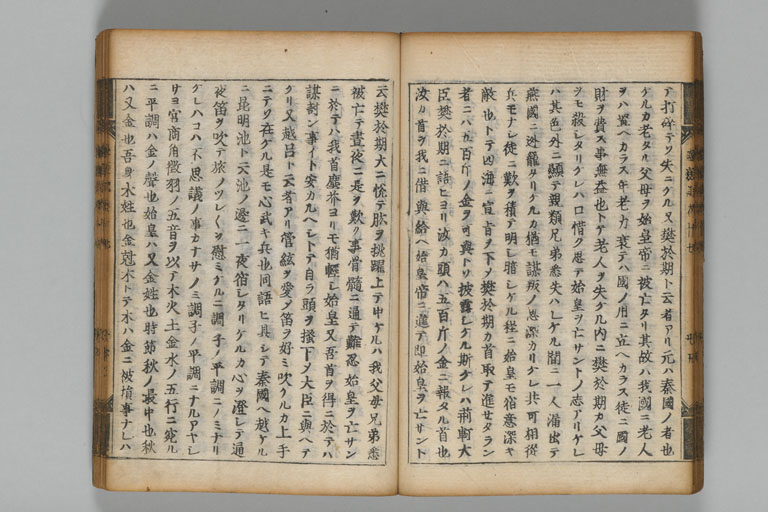 テ打碎テソ失ニケル又樊於期ト云者アリ元ハ秦國ノ者也
ケルカ老タル父母ヲ始皇帝ニ被亡タリ其故ハ我國ニ老人
ヲハ置ヘカラス年老力衰テハ國ノ用ニ立ヘカラス徒ニ國ノ
財ヲ費ス事無益也トテ老人ヲ失ケル内ニ樊於期カ父母
ヲモ殺レタリケレハ口惜ク思テ始皇ヲ亡サントノ志アリケレ
ハ其色外ニ顯テ親類兄弟悉失ハレケル間ニ一人漏出テ
燕國ニ迯籠タリケルカ猶モ謀叛ノ思深カリケレ共可相從
兵モナシ徒ニ歎ヲ積テ明シ暗シケル程ニ始皇モ宿意深キ
敵也トテ四海ニ宣旨ヲ下〆樊於期カ首取テ進セタラン
者ニハ五百斤ノ金ヲ可與トソ披露シケル斯ケレハ荊軻大
臣樊於期ニ語ヒヨリ汝カ頭ハ五百斤ノ金ニ報タル首也
汝カ首ヲ我ニ借與給ヘ始皇帝ニ進テ即始皇ヲ亡サント
云樊於期大ニ悦テ肱ヲ挑躍上テ申ケルハ我父母兄弟悉
被亡テ晝夜ニ是ヲ歎ク事骨髓ニ通テ難忍始皇ヲ亡サン
ニ於テハ我首塵芥ヨリモ猶輕シ始皇又吾首ヲ得ニ於テハ
謀討ン事イト安カルヘシトテ自ラ頭ヲ掻下〆大臣ニ與ヘテ
ケリ又越呂ト云者アリ管絃ヲ愛〆笛ヲ好ミ吹ケルカ上手
ニテソ在ケル是モ心武キ兵也同語ヒ具シテ秦國ヘ越ケル
ニ昆明池ト云池ノ邊ニ一夜宿シタリケルカ心ヲ澄シテ通
夜笛ヲ吹テ旅ノツレ〱ヲ慰ミケルニ調子ノ平調ニノミナリ
ケレハコハ不思議ノ事カナサノミ調子ノ平調ニナルアヤシ
サヨ宮商角徴羽ノ五音ヲ以テ木火土金水ノ五行ニ宛ル
ニ平調ハ金ノ聲也始皇ハ又金姓也時節秋ノ最中也秋
ハ又金也吾身木姓也金剋木トテ木ハ金ニ被損事ナレハ